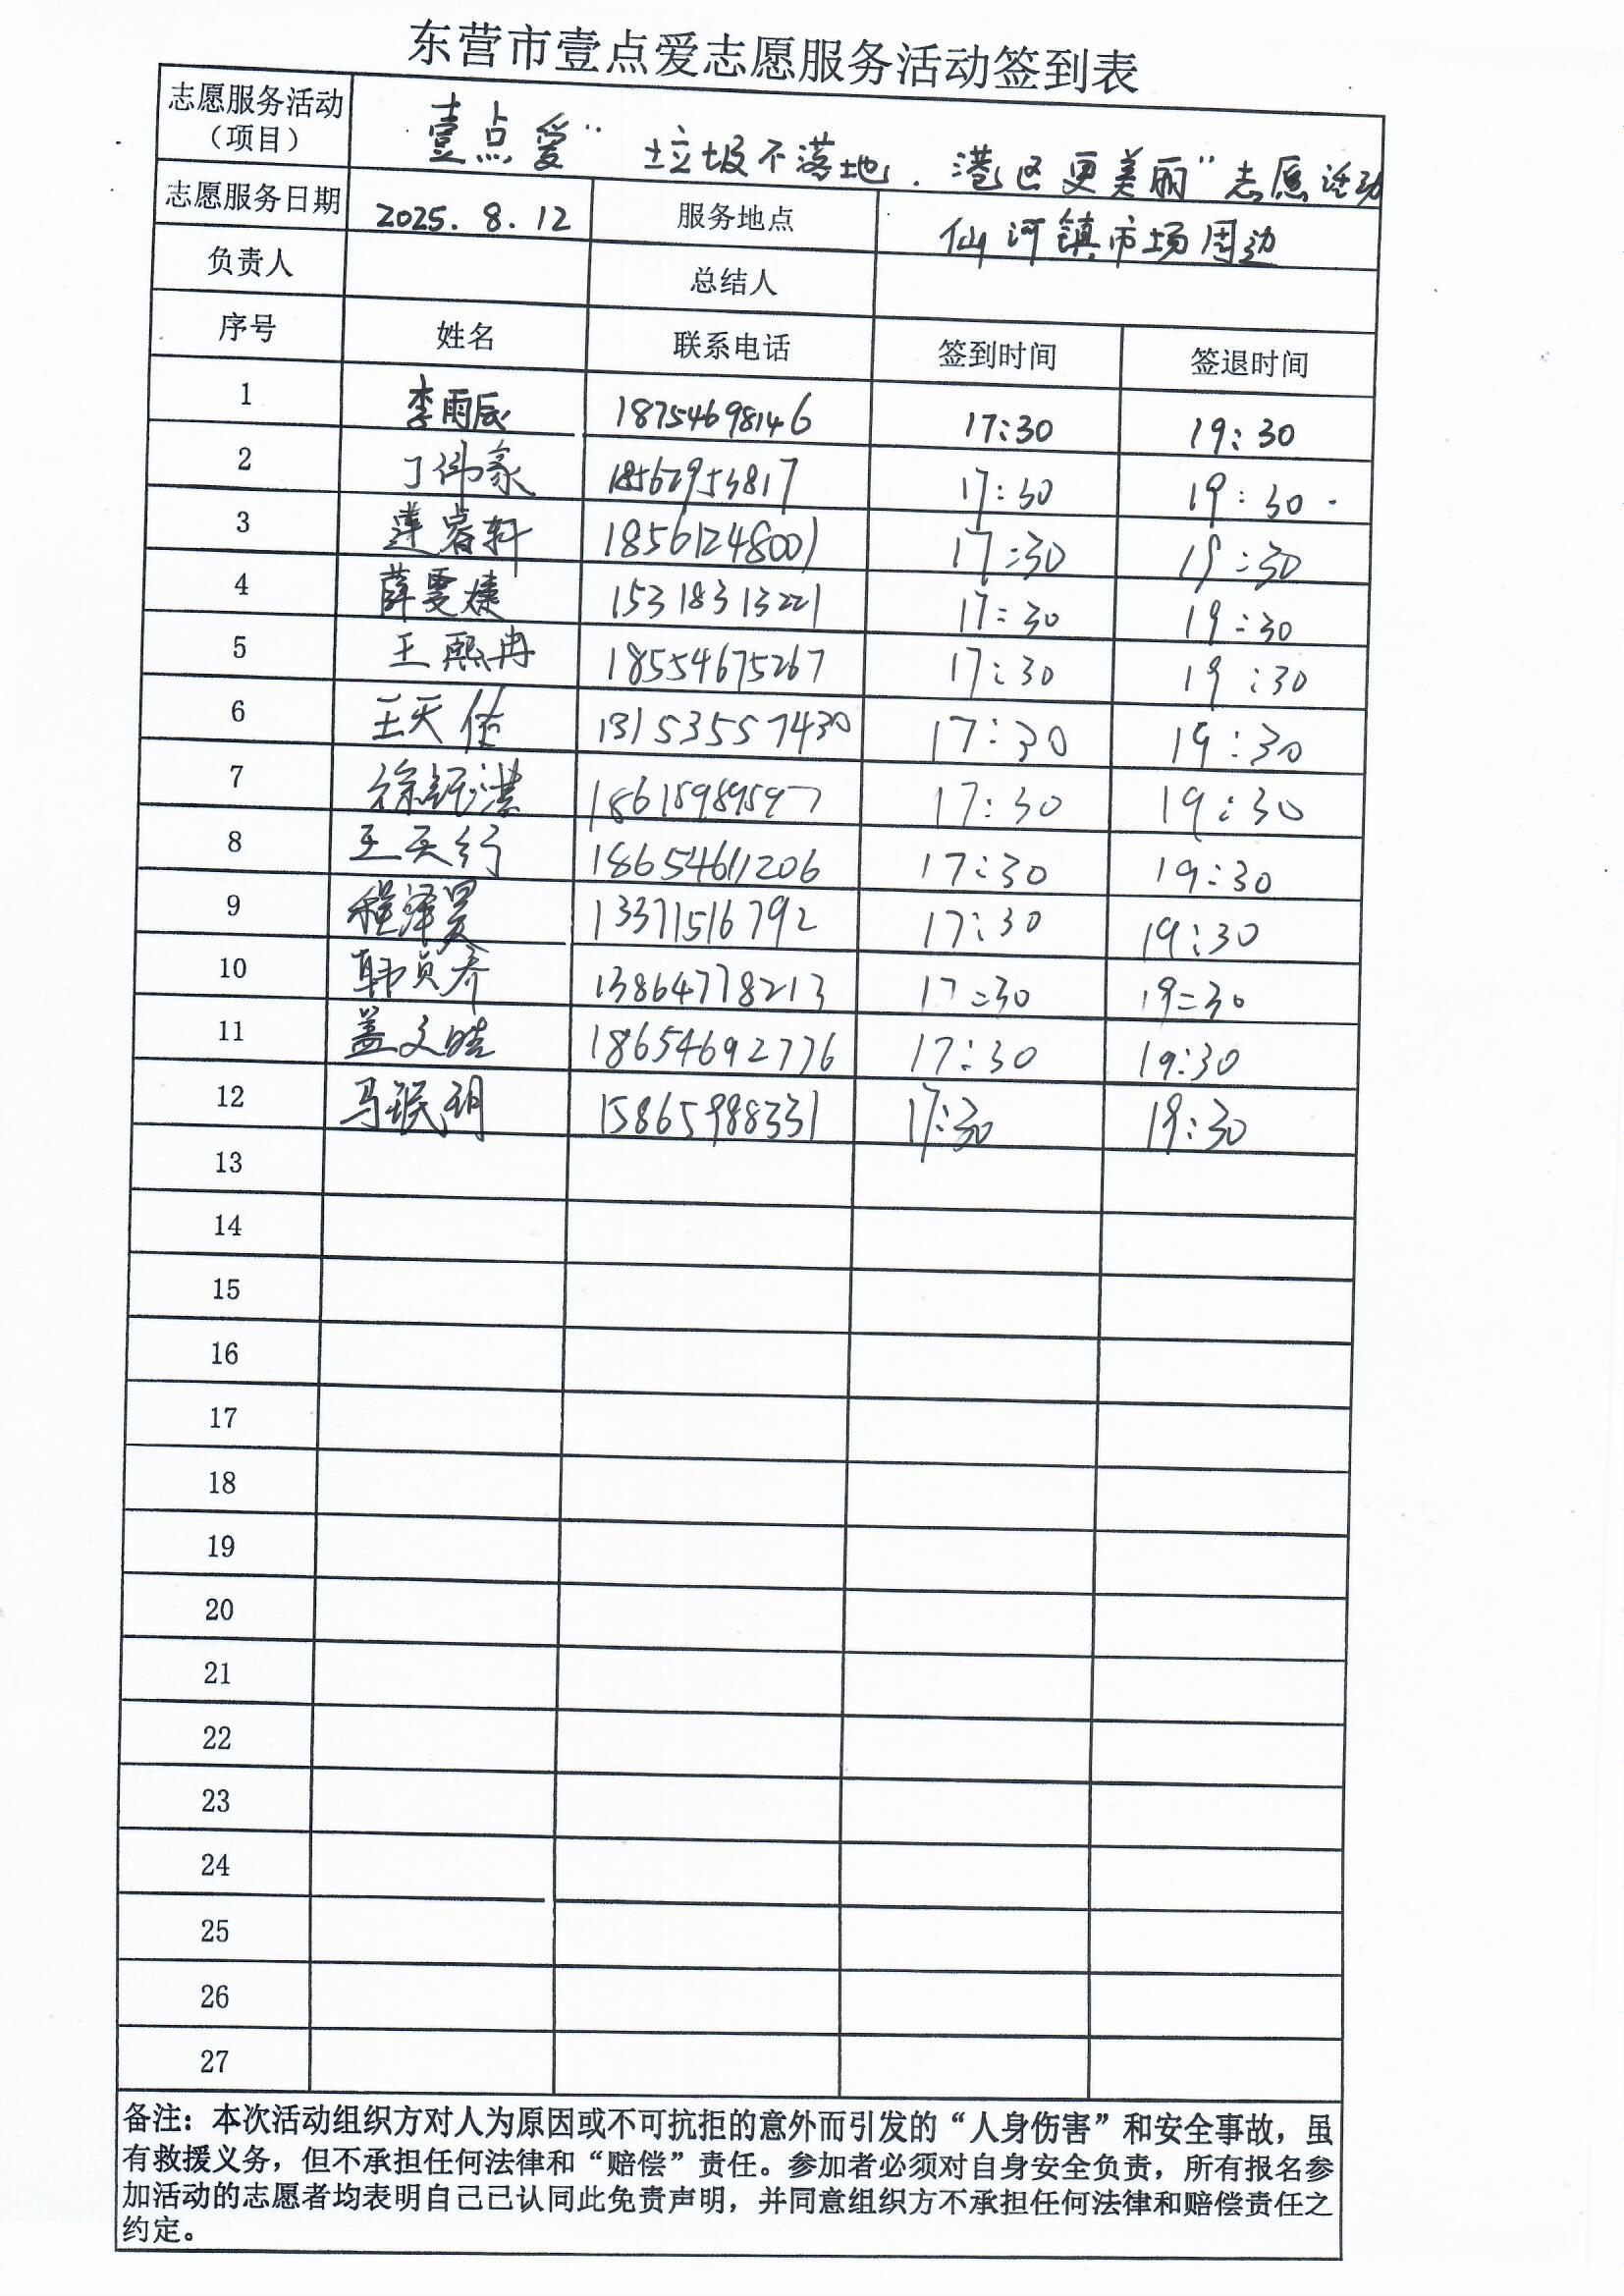 东营市壹点爱志愿服务活动签到表
志愿服务活动（项目） 壹点爱“垃圾不落地.港区更美丽”志愿活动
志愿服务日期 2025.8.12 服务地点 仙河镇市场周边
负责人 总结人
序号 姓名 联系电话 签到时间 签退时间
1 李雨辰 18754698146 17:30 19:30
2 丁沛豪 18562953817 17:30 19:30
3 睿轩 18561248001 17:30 19:30
4 薛雯婕 15318313221 17:30 19:30
5 王熙冉 18554675267 17:30 19:30
6 王天佑 13153557430 17:30 19:30
7 徐 18615989597 17:30 19:30
8 王天行 18654611206 17:30 19:30
9 程泽昊 13371516792 17:30 19:30
10 韩贞乔 13864778213 17:30 19:30
11 盖文皓 18654692776 17:30 19:30
12 马珉玥 15865988331 17:30 19:30
13
14
15
16
17
18
19
20
21
22
23
24
25
26
27
备注：本次活动组织方对人为原因或不可抗拒的意外而引发的“人身伤害”和安全事故，虽
有救援义务，但不承担任何法律和“赔偿”责任。参加者必须对自身安全负责，所有报名参
加活动的志愿者均表明自己已认同此免责声明，并同意组织方不承担任何法律和赔偿责任之
约定。